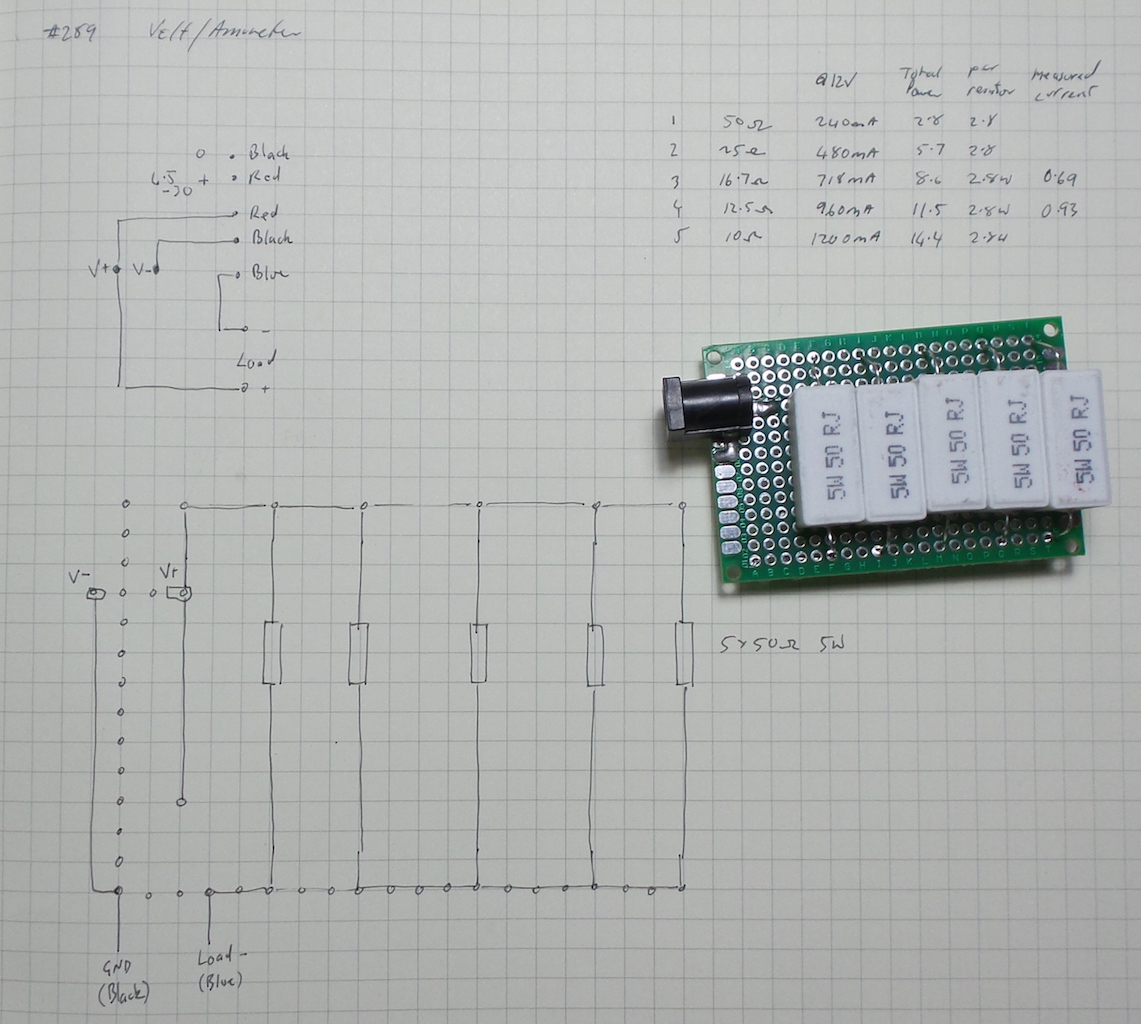 #289 Volt/Ammeter
@12V Total Power per resistor Measured current
1 50Ω 240mA 2.8 2.8
2 25Ω 480mA 5.7 2.8
3 16.7Ω 718mA 8.6 2.8W 0.69
4 12.5Ω 960mA 11.5 2.8W 0.93
5 10Ω 1200mA 14.4 2.84
0 Black
4.5 → 30 + Red
Red
Black
V+ V- Blue
-
Load
+
5W 50 RJ
5W 50 RJ
5W 50 RJ
5W 50 RJ
5W 50 RJ
V- V+
5x50Ω 5W
GND (Black)
Load - (Blue)